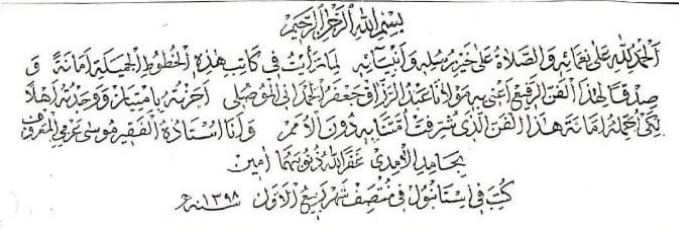 بسم الله الرحمن الرحيم
الحمد لله على نعمائه والصلاة على خير رسله وأنبيائه لما رأيت في كاتب هذه الخطوط الجميلة أمانة و
صدقا لهذا الفن الرفيع أعني به مولانا عبد الرزاق جعفر الحمداني الموصلي أجزته بامتياز ووجدته أهلا
لكي أحمله أمانة هذا الفن الذي شرفت أمتنا به دون الأمم وأنا استاذه الفقير موسى عزمي المعروف
بحامد الآمدي غفر الله ذنوبهما آمين
كتب في استانبول في منتصف شهر ربيع الأول سنة ١٣٩٨